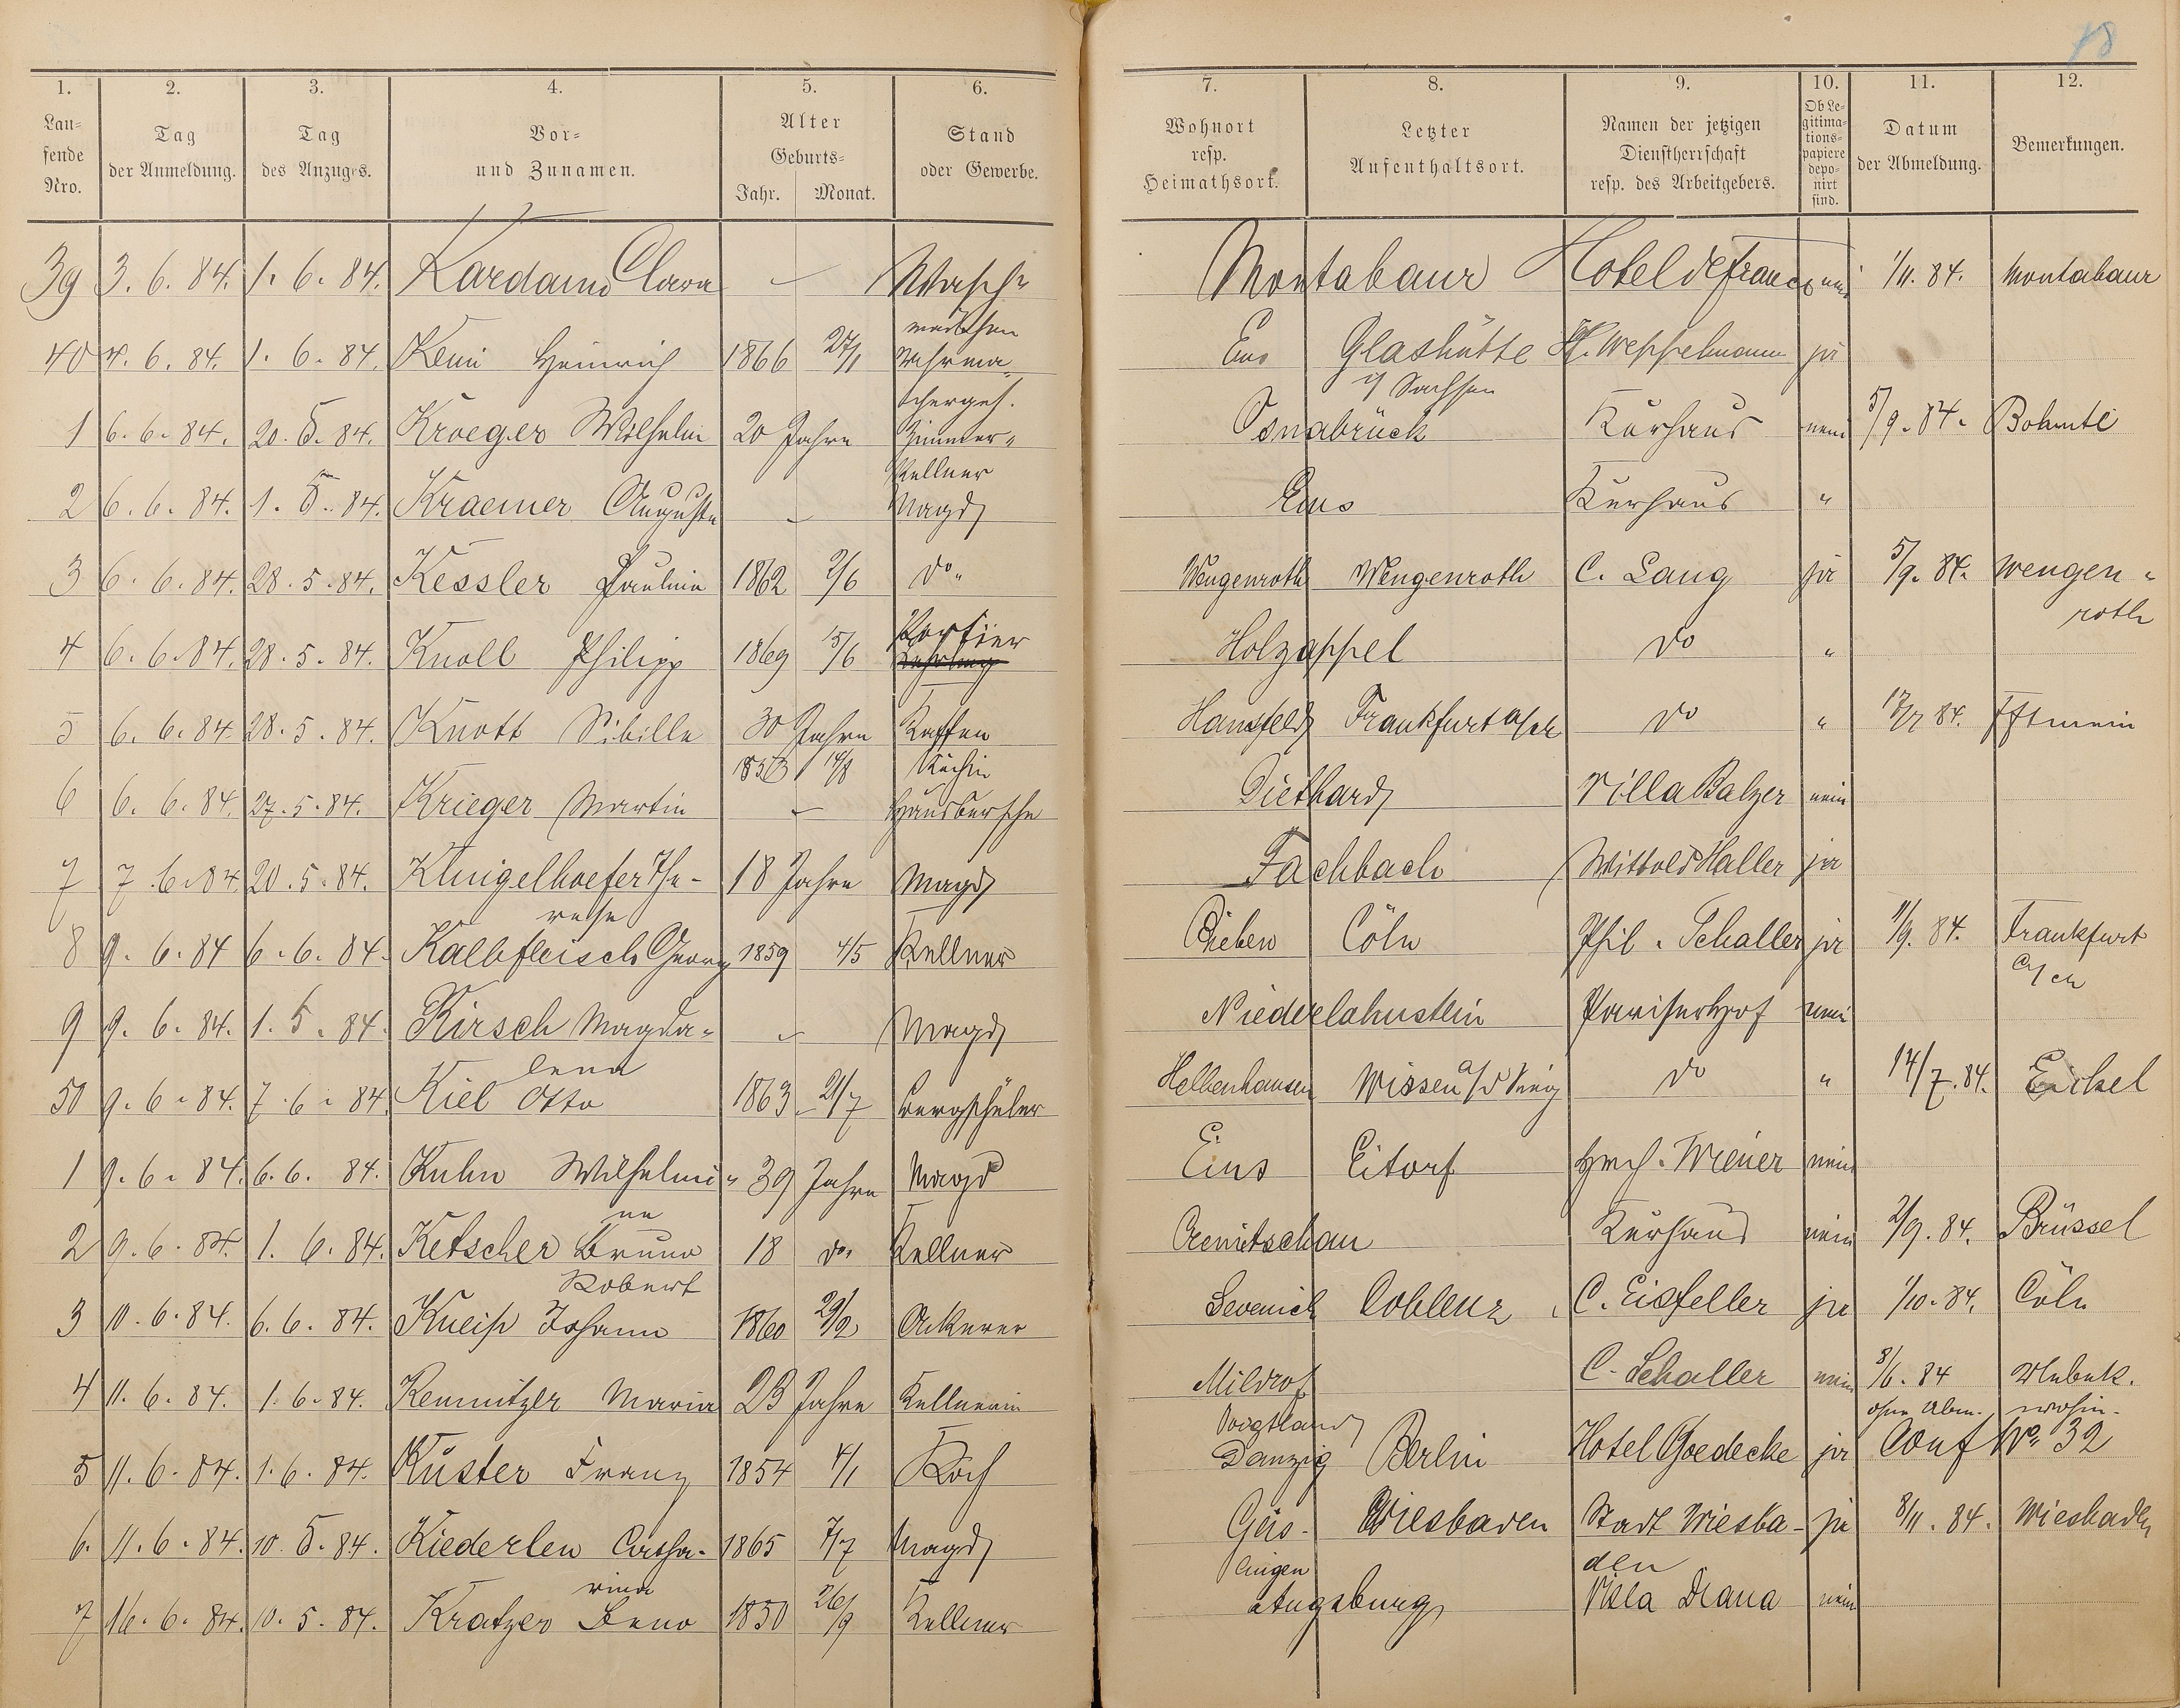 18
1. 2. 3. 4. 5. 6. 7. 8. 9. 10. 11. 12.
Lau=
fende
Nro.
Tag
der Anmeldung.
Tag
des Anzuges.
Vor=
und Zunamen.
Alter
Geburts=
Jahr. Monat.
Stand
oder Gewerbe.
Wohnort
resp.
Heimathsort.
Letzter
Aufenthaltsort.
Namen der jetzigen
Dienstherrschaft
resp. des Arbeitgebers.
Ob Le=
gitima=
tions=
papiere
depo=
nirt
sind.
Datum
der Abmeldung.
Bemerkungen.
39 3. 6. 84. 1. 6. 84. Kardamd Clara – Wasch= Montabaur Hotel de France nein 1/11. 84. Montabaur
mädchen
40 4. 6. 84. 1. 6. 84. Keni Heinrich 1866 27/1 Uhrma= Ems Glashütte H. Weppelmann ja
cherges. i/ Sachsen
1 6. 6. 84. 20. 5. 84. Kroeger Wilhelm 20 Jahre Zimmer= Osnabrück Kurhaus nein 5/9. 84. Bohmte
Kellner
2 6. 6. 84. 1. 5. 84. Kraemer Auguste – Magd Ems Kurhaus "
3 6. 6. 84. 28. 5. 84. Kessler Paulina 1862 2/6 do. Wengenroth Wengenroth C. Lang ja 5/9. 84. Wengen=
roth
4 6. 6. 84. 28. 5. 84. Knoll Philipp 1869 15/6 Portier Holzappel do "
5 6. 6. 84. 28. 5. 84. Knott Sibilla 30 Jahre Kaffee Hansfeld Frankfurt a/M do " 84.
1853 14/8 Köchin
6 6. 6. 84. 27. 5. 84. Krieger Martin – Hausbursche Diethard Villa Balzer nein
7 7. 6. 84 20. 5. 84. Klingelhoefer The- 18 Jahre Magd Fachbach Wittwe D Haller ja
rese
8 9. 6. 84 6. 6. 84. Kalbfleisch Georg 1859 4/5 Kellner Bieben Cöln Phil. Schaller ja 11/9. 84. Frankfurt
a/M
9 9. 6. 84. 1. 5. 84. Kirsch Magda= – Magd Niederlahnstein Pariserhof nein
lena
50 9. 6. 84. 7. 6. 84 Kiel Otto 1863 21/7 Bergschüler Helbenhausen Wissen a/d Sieg do " 14/7. 84. Eickel
1 9. 6. 84. 6. 6. 84. Kuhn Wilhelmi= 39 Jahre Magd Ems Eitorf Hrch. Wiener nein
ne
2 9. 6. 84. 1. 6. 84. Ketscher Bruno 18 do. Kellner Crimitschau Kurhaus nein 2/9. 84. Brüssel
Robert
3 10. 6. 84. 6. 6. 84. Kneip Johann 1860 29/2 Ackerer Sevenich Coblenz C. Eisfeller ja 1/10. 84. Cöln
4 11. 6. 84. 1. 6. 84. Kemnitzer Maria 23 Jahre Kellnerin C. Schaller nein 8/6. 84 Unbek.
Voigtland ohne Abm. wohin.
5 11. 6. 84. 1. 6. 84. Küster Franz 1854 4/1 Koch Danzig Berlin Hotel Goedecke ja Conf No. 32
6. 11. 6. 84. 10. 5. 84. Kiederlen Catha- 1865 7/7 Magd Geis- Wiesbaden Stadt Wiesba- ja 8/11. 84. Wiesbaden
rina lingen den
7 16. 6. 84. 10. 5. 84. Kratzer Beno 1850 26/9 Kellner Augsburg Villa Diana nein